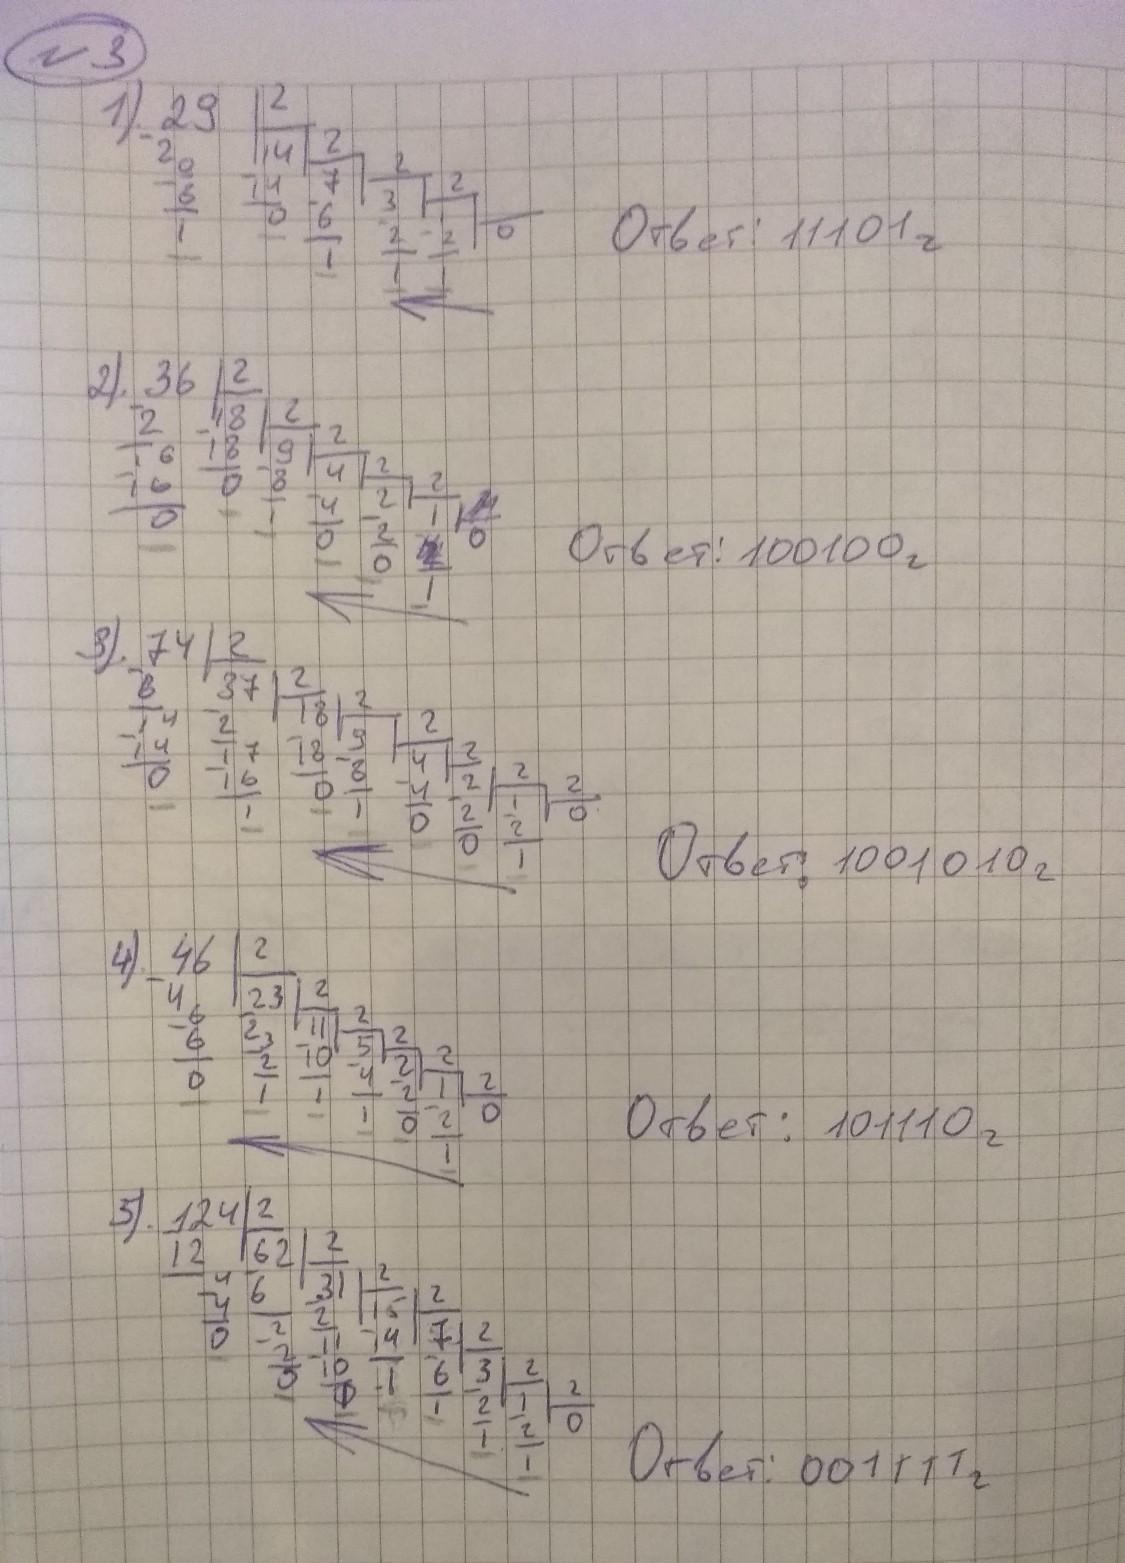 №3
1). 29 | 2
2 14 2
9 14 7 2
8 0 6 3 2
1 1 2 1 0
1 2
1
Ответ: 11101₂
2). 36 | 2
2 18 2
16 18 9 2
16 0 8 4 2
0 1 4 2 2
0 2 1 0
0 1
Ответ: 100100₂
3). 74 | 2
6 37 2
14 2 18 2
14 17 18 9 2
0 16 0 8 4 2
1 1 4 2 2 2
0 2 1 0
0 2
1
Ответ: 1001010₂
4). 46 | 2
4 23 2
6 2 11 2
6 3 10 5 2
0 2 1 4 2 2
1 1 2 1 2
0 2 0
1
Ответ: 101110₂
5). 124 | 2
12 62 2
4 6 31 2
4 2 2 15 2
0 2 11 14 7 2
0 10 1 6 3 2
1 2 1 2
1 2 0
1
Ответ: 0011111₂